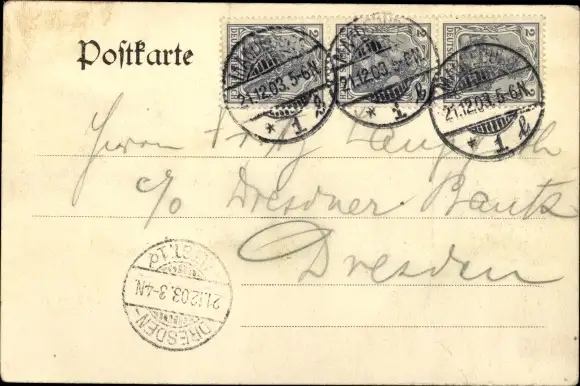 Postkarte
2 2 2
21.12.03. 5-6N. 21.12.03. 5-6N. 21.12.03. 5-6N.
* 1 l * 1 l * 1 l
Herrn Fritz
c/o Dresdner Bank
Dresden
21.12.03. 3-4N.
DRESDEN-